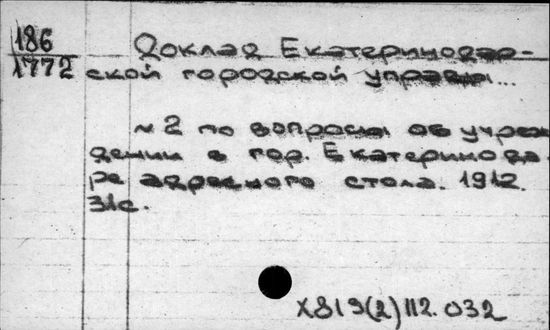 186
1772
Доклад Екатеринодар-
ской городской управы...
№2 по вопросу об учреж
дении в гор. Екатеринода
ре адресного стола. 1912.
31с.
X819(2)112.032